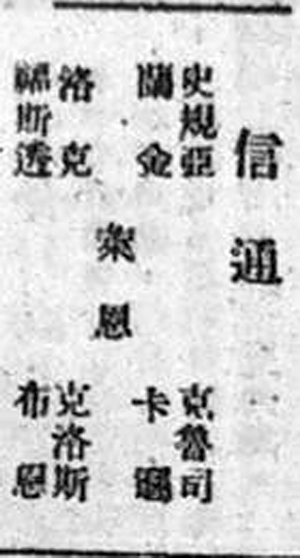 信通
史規亞 克魯司
蘭金 卡
衆恩
洛克 克洛斯
福斯透 布恩